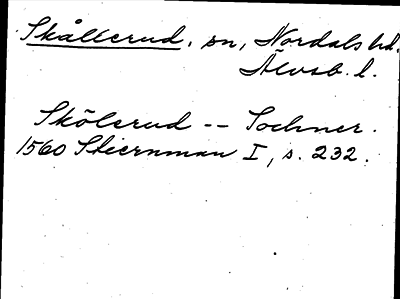 Skållerud, sn, Nordals hd.
Älvsb. l.
Skölerud -- Sochner.
1560 Stiernman I, s. 232.